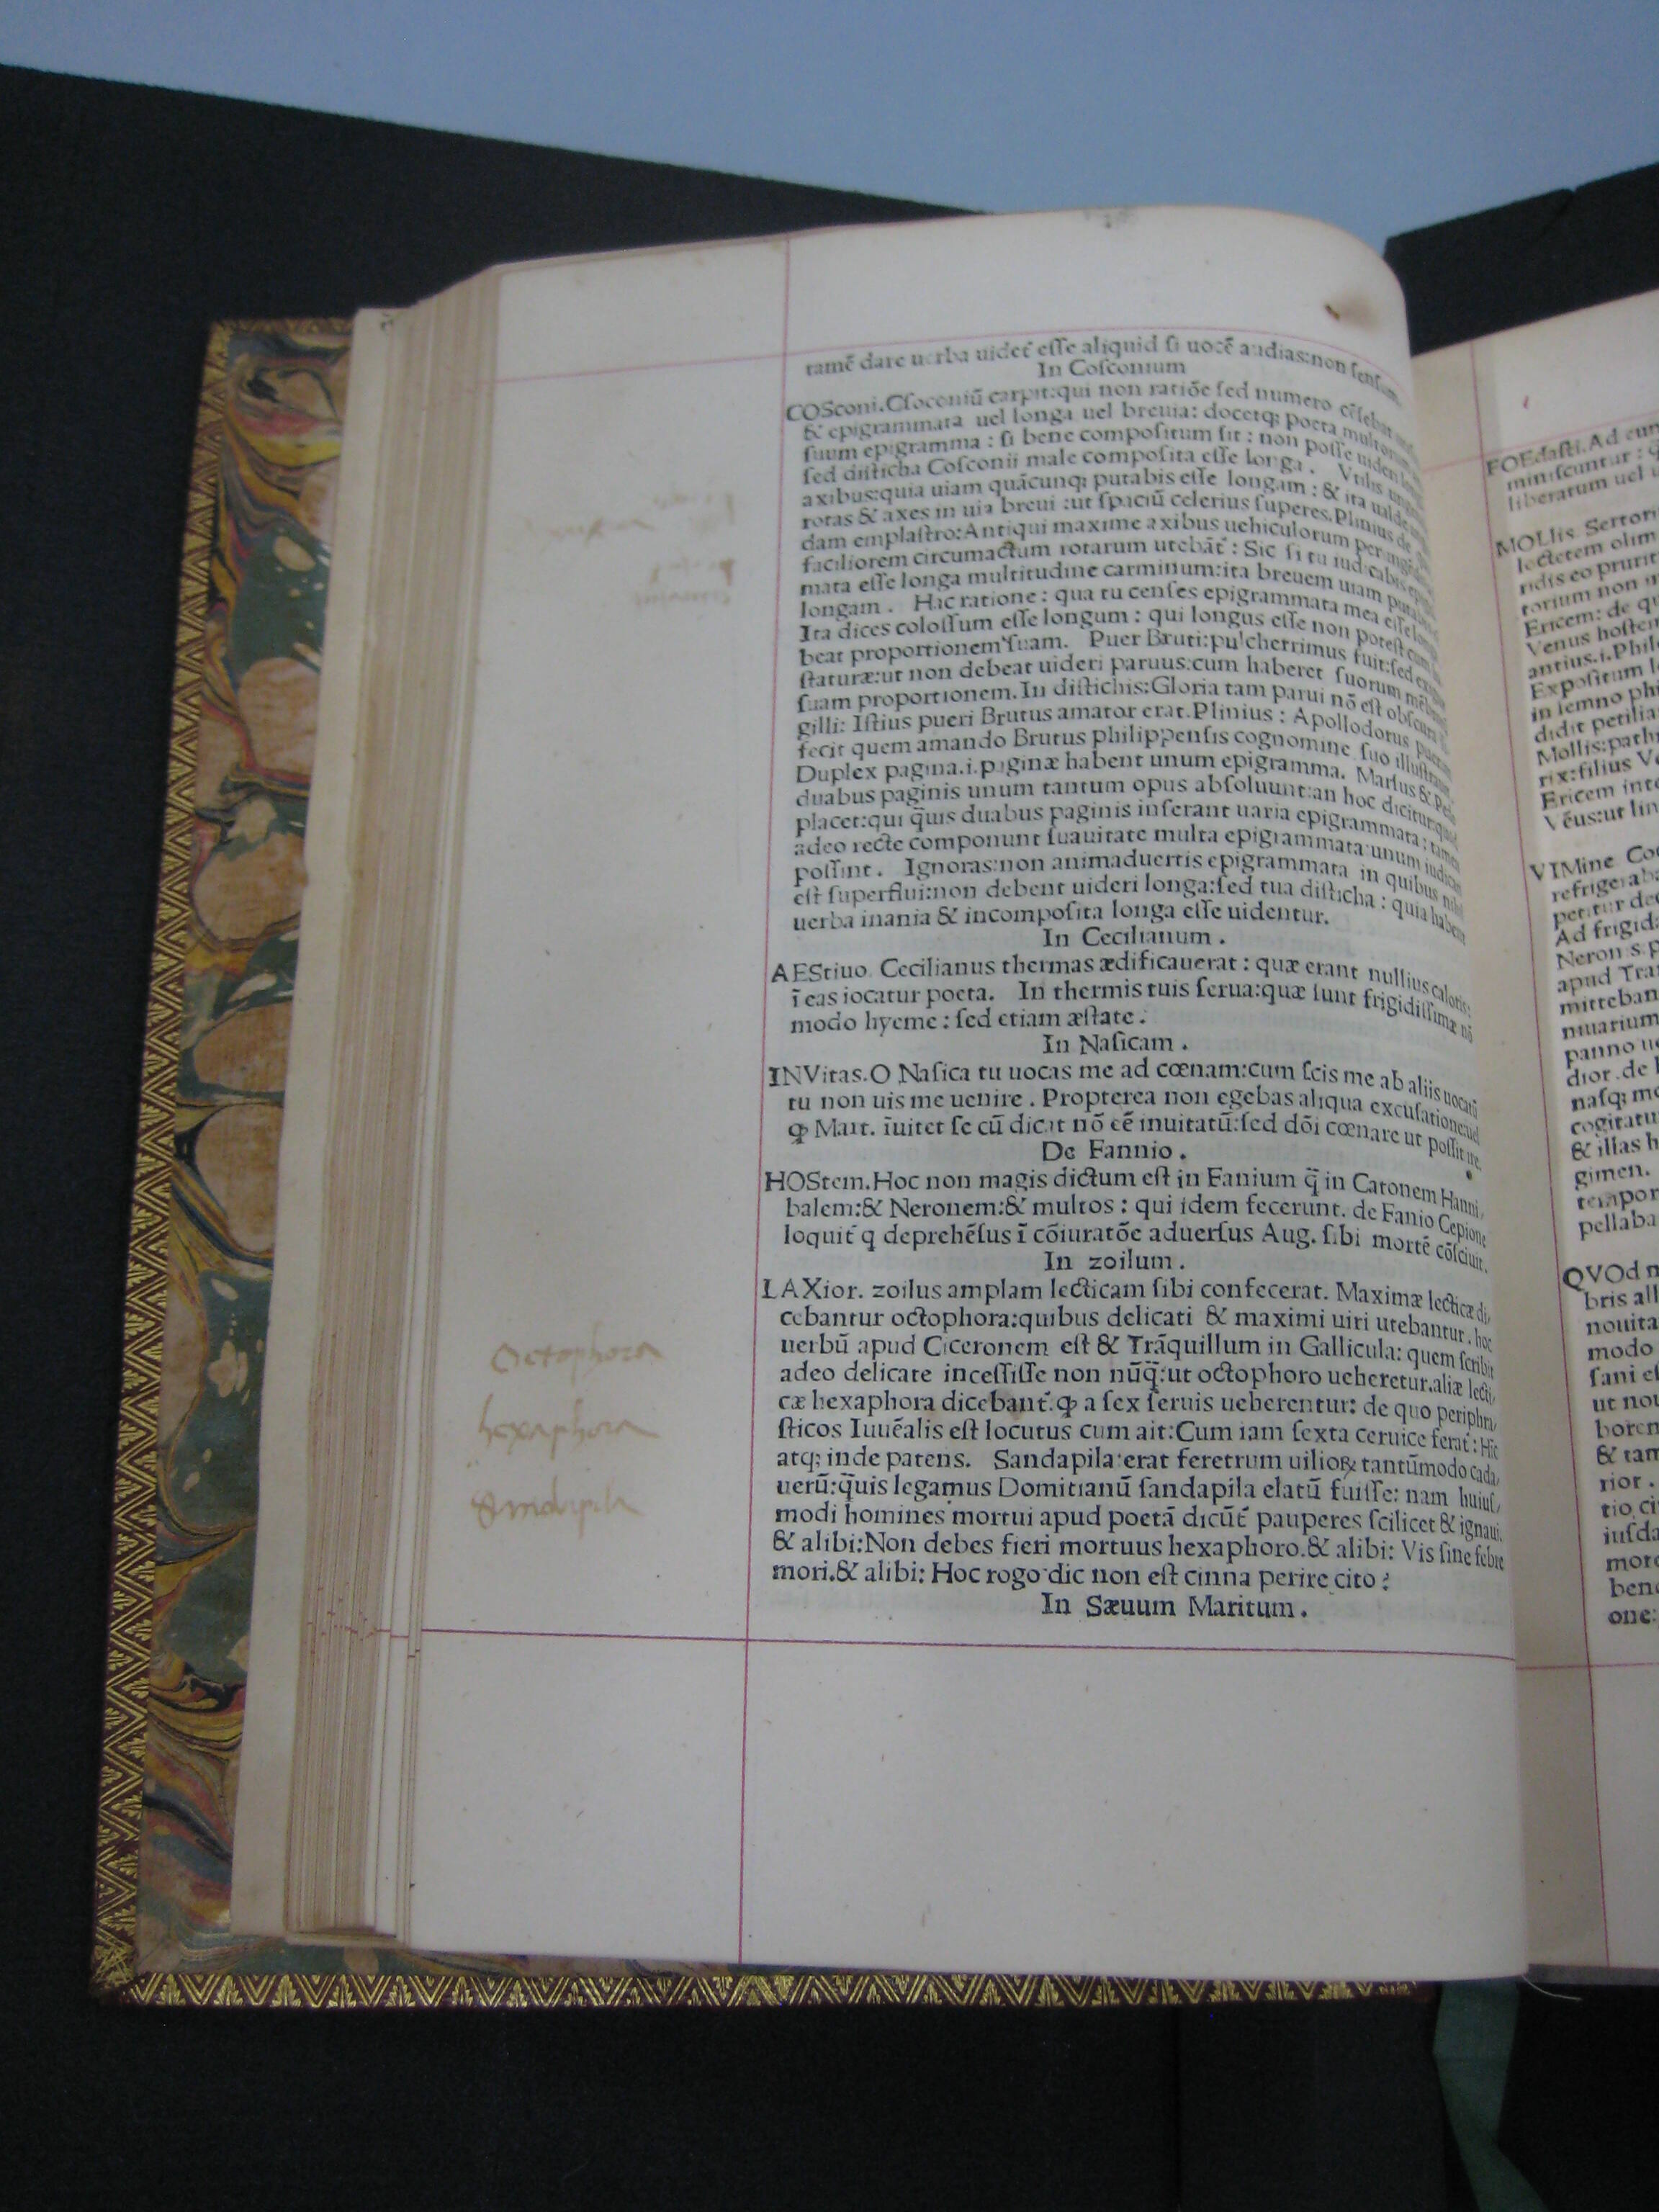 tamē dare uerba uidet̄ eſſe aliquid ſi uocē audias:non ſenſum.
In Coſconium
COSconi.Cſoconiū carpit:qui non ratiōe ſed numero cēſebat
& epigrammata uel longa uel breuia: docetq; poeta multorum
ſuum epigramma : ſi bene compoſitum ſit : non poſſe uideri longum
ſed diſticha Coſconii male compoſita eſſe longa . Vtilis
axibus:quia uiam quācunq; putabis eſſe longam : & ita ualde
rotas & axes in uia breui :ut ſpaciū celerius ſuperes.Plinius de
dam emplaſtro:Antiqui maxime axibus uehiculorum perungēdis
faciliorem circumactum rotarum utebāt̄ : Sic ſi tu iudicabis
mata eſſe longa multitudine carminum:ita breuem uiam putabis
longam . Hac ratione : qua tu cenſes epigrammata mea eſſe longa
Ita dices coloſſum eſſe longum : qui longus eſſe non poteſt cum
beat proportionem ſuam. Puer Bruti:pulcherrimus fuit:ſed
ſtaturæ:ut non debeat uideri paruus:cum haberet ſuorum mēbrorum
ſuam proportionem.In diſtichis:Gloria tam parui nō eſt obſcura
gilli: Iſtius pueri Brutus amator erat.Plinius : Apollodorus puerum
fecit quem amando Brutus philippenſis cognomine ſuo illuſtrauit.
Duplex pagina.i.paginæ habent unum epigramma. Marſus & Pedo
duabus paginis unum tantum opus abſoluunt:an hoc dicitur:quod
placet:qui q̄uis duabus paginis inſerant uaria epigrammata : tamen
adeo recte componunt ſuauitate multa epigrammata:unum iudicari
poſſint. Ignoras:non animaduertis epigrammata in quibus nihil
eſt ſuperflui:non debent uideri longa:ſed tua diſticha : quia habent
uerba inania & incompoſita longa eſſe uidentur.
In Cecilianum .
AEStiuo. Cecilianus thermas ædificauerat : quæ erant nullius caloris:
ī eas iocatur poeta. In thermis tuis ſerua:quæ ſunt frigidiſſimæ nō
modo hyeme : ſed etiam æſtate .
In Naſicam .
INVitas.O Naſica tu uocas me ad cœnam:cum ſcis me ab aliis uocatū
tu non uis me uenire . Propterea non egebas aliqua excuſatione:uel
ꝙ Mart. īuitet ſe cū dicat nō eē inuitatū:ſed dōi cœnare ut poſſit ire.
De Fannio .
HOStem.Hoc non magis dictum eſt in Fanium q̄ in Catonem Hanni,
balem:& Neronem:& multos : qui idem fecerunt. de Fanio Cepione
loquit̄ q deprehēſus ī cōiuratōe aduerſus Aug. ſibi mortē cōſciuit.
In zoilum .
LAXior. zoilus amplam lecticam ſibi confecerat. Maximæ lecticæ di,
cebantur octophora:quibus delicati & maximi uiri utebantur . hoc
uerbū apud Ciceronem eſt & Trāquillum in Gallicula: quem ſcribit
adeo delicate inceſſiſſe non nūq̄:ut octophoro ueheretur.aliæ lecti,
cæ hexaphora dicebant̄.ꝙ a ſex ſeruis ueherentur: de quo periphra,
ſticos Iuuēalis eſt locutus cum ait:Cum iam ſexta ceruice ferat̄ : Hic
atq; inde patens. Sandapila:erat feretrum uilioꝝ tantūmodo cada,
uerū:q̄uis legamus Domitianū ſandapila elatū fuiſſe: nam huiuſ,
modi homines mortui apud poetā dicūt̄ pauperes ſcilicet & ignaui.
& alibi:Non debes fieri mortuus hexaphoro.& alibi: Vis ſine febre
mori.& alibi: Hoc rogo dic non eſt cinna perire cito ?
In Sæuum Maritum .
Octophora
hexaphora
Sandapila
FOEdaſti.Ad eun
miniſcuntur : q
liberatum uel u
MOLlis. Sertori
lectetem olim
ridis eo prurit
torium non in
Ericem: de qu
Venus hoſtem
antius.i.Phil
Expoſitum l
in lemno phi
didit petilia
Mollis:path
rix:filius Ve
Ericem inte
Vēus:ut lin
VIMine Coc
refrigeraba
petitur dec
Ad frigida
Neronis p
apud Tra
mitteban
niuarium
panno ue
dior .de l
naſq; mo
cogitatu
& illas h
gimen.
tempor
pellaba
QVOd n
bris all
nouita
modo
ſani eſ
ut nou
borem
& tam
rior .
tio ci
iuſda
mor
bene
one: